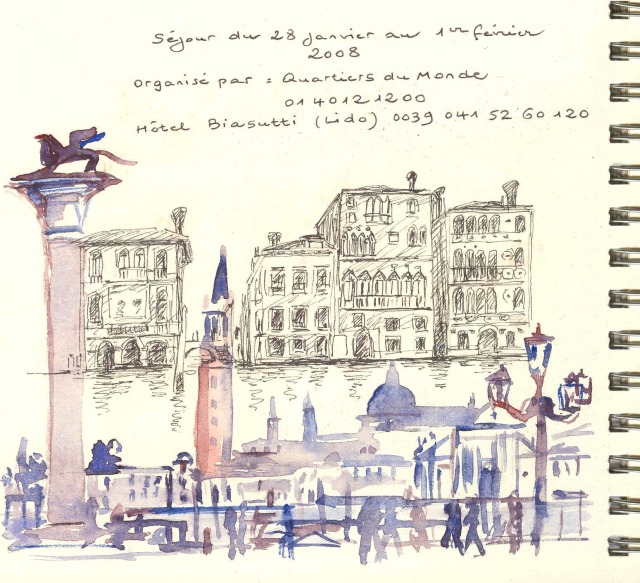 Séjour du 28 janvier au 1er février
2008
organisé par : Quartiers du Monde
01 40 12 12 00
Hôtel Biasutti (Lido) 0039 041 52 60 120